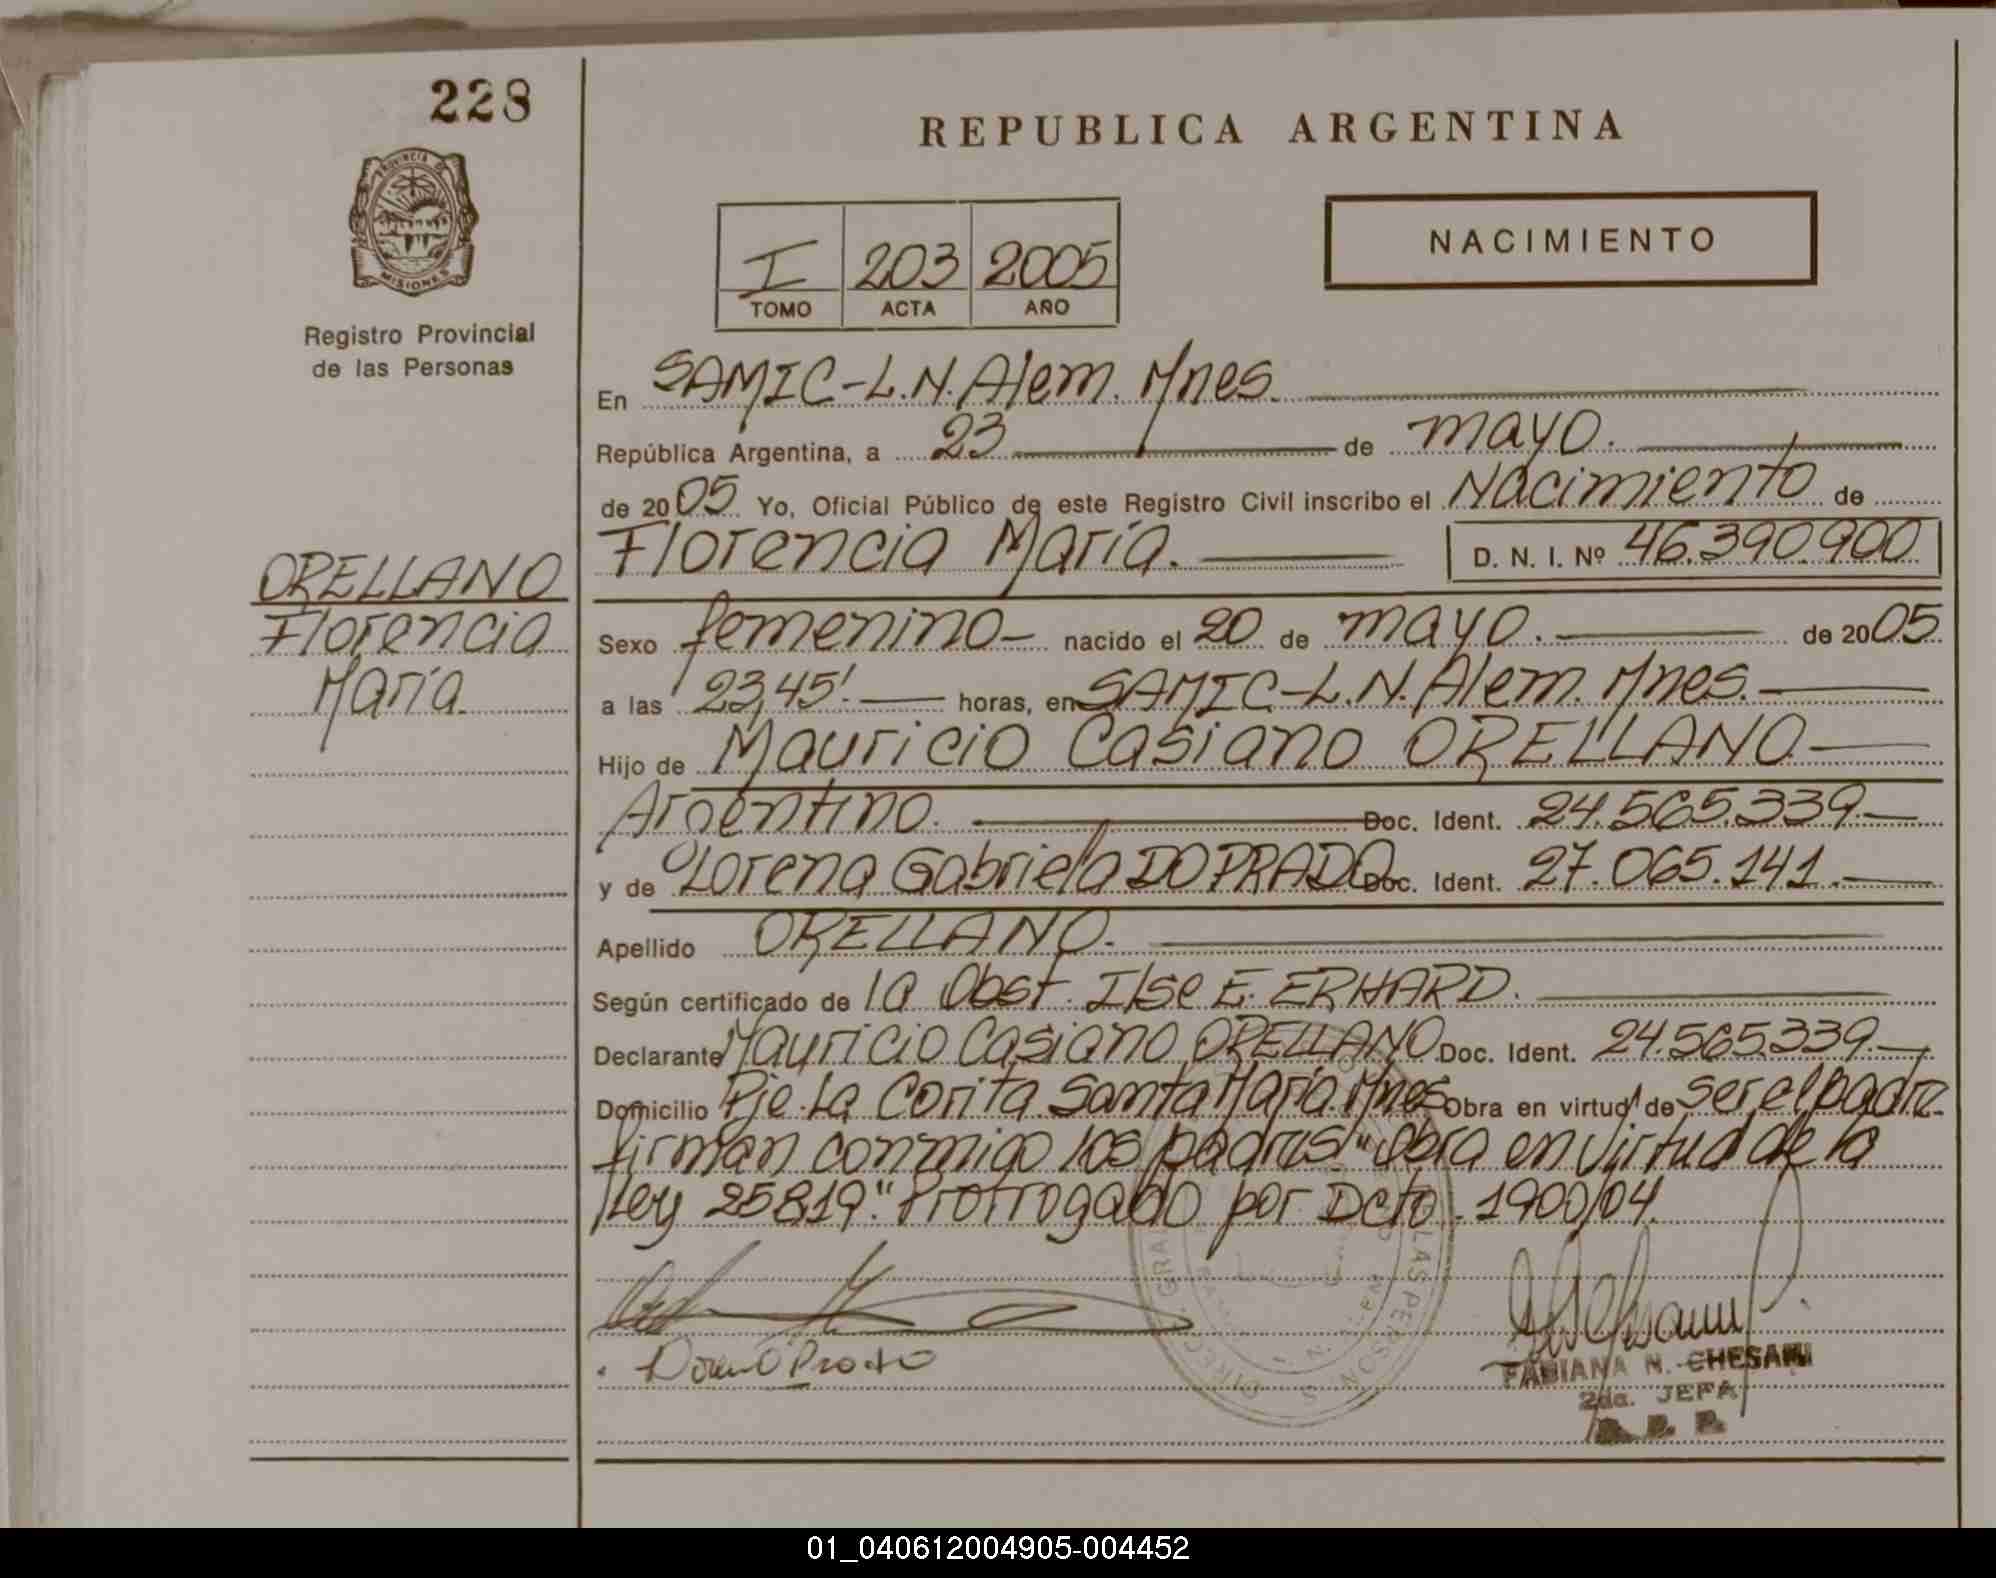 228
REPUBLICA ARGENTINA
PROVINCIA DE
MISIONES
NACIMIENTO
I 203 2005
TOMO ACTA AÑO
Registro Provincial
de las Personas
En SAMIC-L.N.Alem. Mnes.
República Argentina, a 23 de mayo.
de 2005 Yo, Oficial Público de este Registro Civil inscribo el Nacimiento de
Florencia María. D. N. I. Nº 46.390.900
ORELLANO
Florencia
María.
Sexo femenino- nacido el 20 de mayo. de 2005
a las 23,45'. horas, en SAMIC-L.N. Alem. Mnes.
Hijo de Mauricio Casiano ORELLANO
Argentino. Doc. Ident. 24.565.339.-
y de Lorena Gabriela DO PRADO Doc. Ident. 27.065.141.-
Apellido ORELLANO.
Según certificado de la Obst. Ilse E. ERHARD.
Declarante Mauricio Casiano ORELLANO Doc. Ident. 24.565.339.-
Domicilio Pje. La Corita. Santa María. Mnes Obra en virtud de ser el padre
firman conmigo los padres "Obra en virtud de la
Ley 25819." Protrogado por Dcto. 1900/04.
FABIANA N. CHESANI
2da. JEFA
R. P. P.
01_040612004905-004452